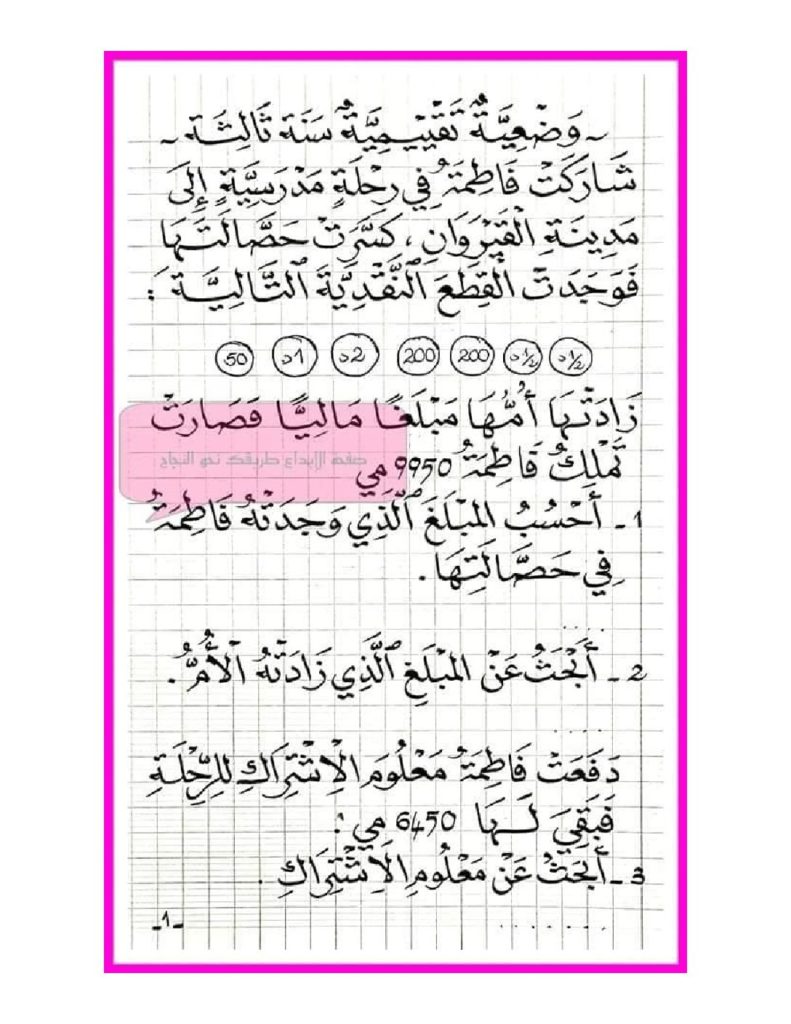 - وَضْعِيَّةٌ تَقْيِيمِيَّةٌ سَنَة ثَالِثَة -
شَارَكَتْ فَاطِمَةُ فِي رِحْلَةٍ مَدْرَسِيَّةٍ إِلَى
مَدِينَةِ الْقَيْرَوَانِ، كَسَّرَتْ حَصَّالَتَهَا
فَوَجَدَتْ الْقِطَعَ النَّقْدِيَّةَ التَّالِيَةَ :
1/2د 1/2د 200 200 2د 1د 50
زَادَتْهَا أُمُّهَا مَبْلَغًا مَالِيًّا فَصَارَتْ
تَمْلِكُ فَاطِمَةُ 9950 مي
صفحة الإبداع طريقك نحو النجاح
1 - أَحْسُبُ المَبْلَغَ الَّذِي وَجَدَتْهُ فَاطِمَةُ
فِي حَصَّالَتِهَا .
. . . .
2 - أَبْحَثُ عَنْ المَبْلَغِ الَّذِي زَادَتْهُ الْأُمُّ .
. . . . .
دَفَعَتْ فَاطِمَةُ مَعْلُومَ الْاِشْتِرَاكِ لِلرِّحْلَةِ
فَبَقِيَ لَهَا 6450 مي :
3 - أَبْحَثُ عَنْ مَعْلُومِ الْاِشْتِرَاكِ .
. . . . . . .
-1-